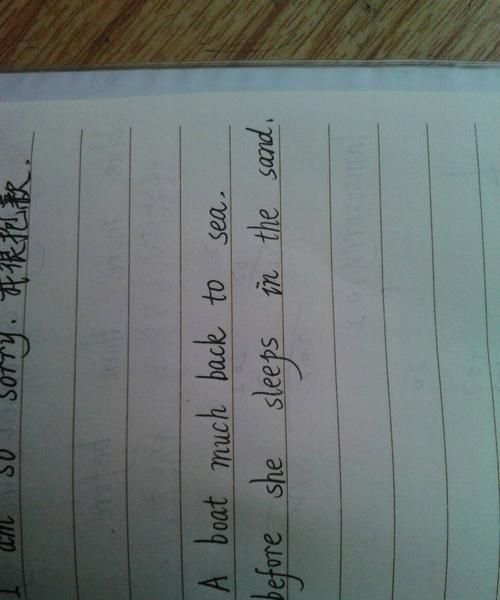 I am so sorry. 我很抱歉。
A boat much back to sea.
before she sleeps in the sand.